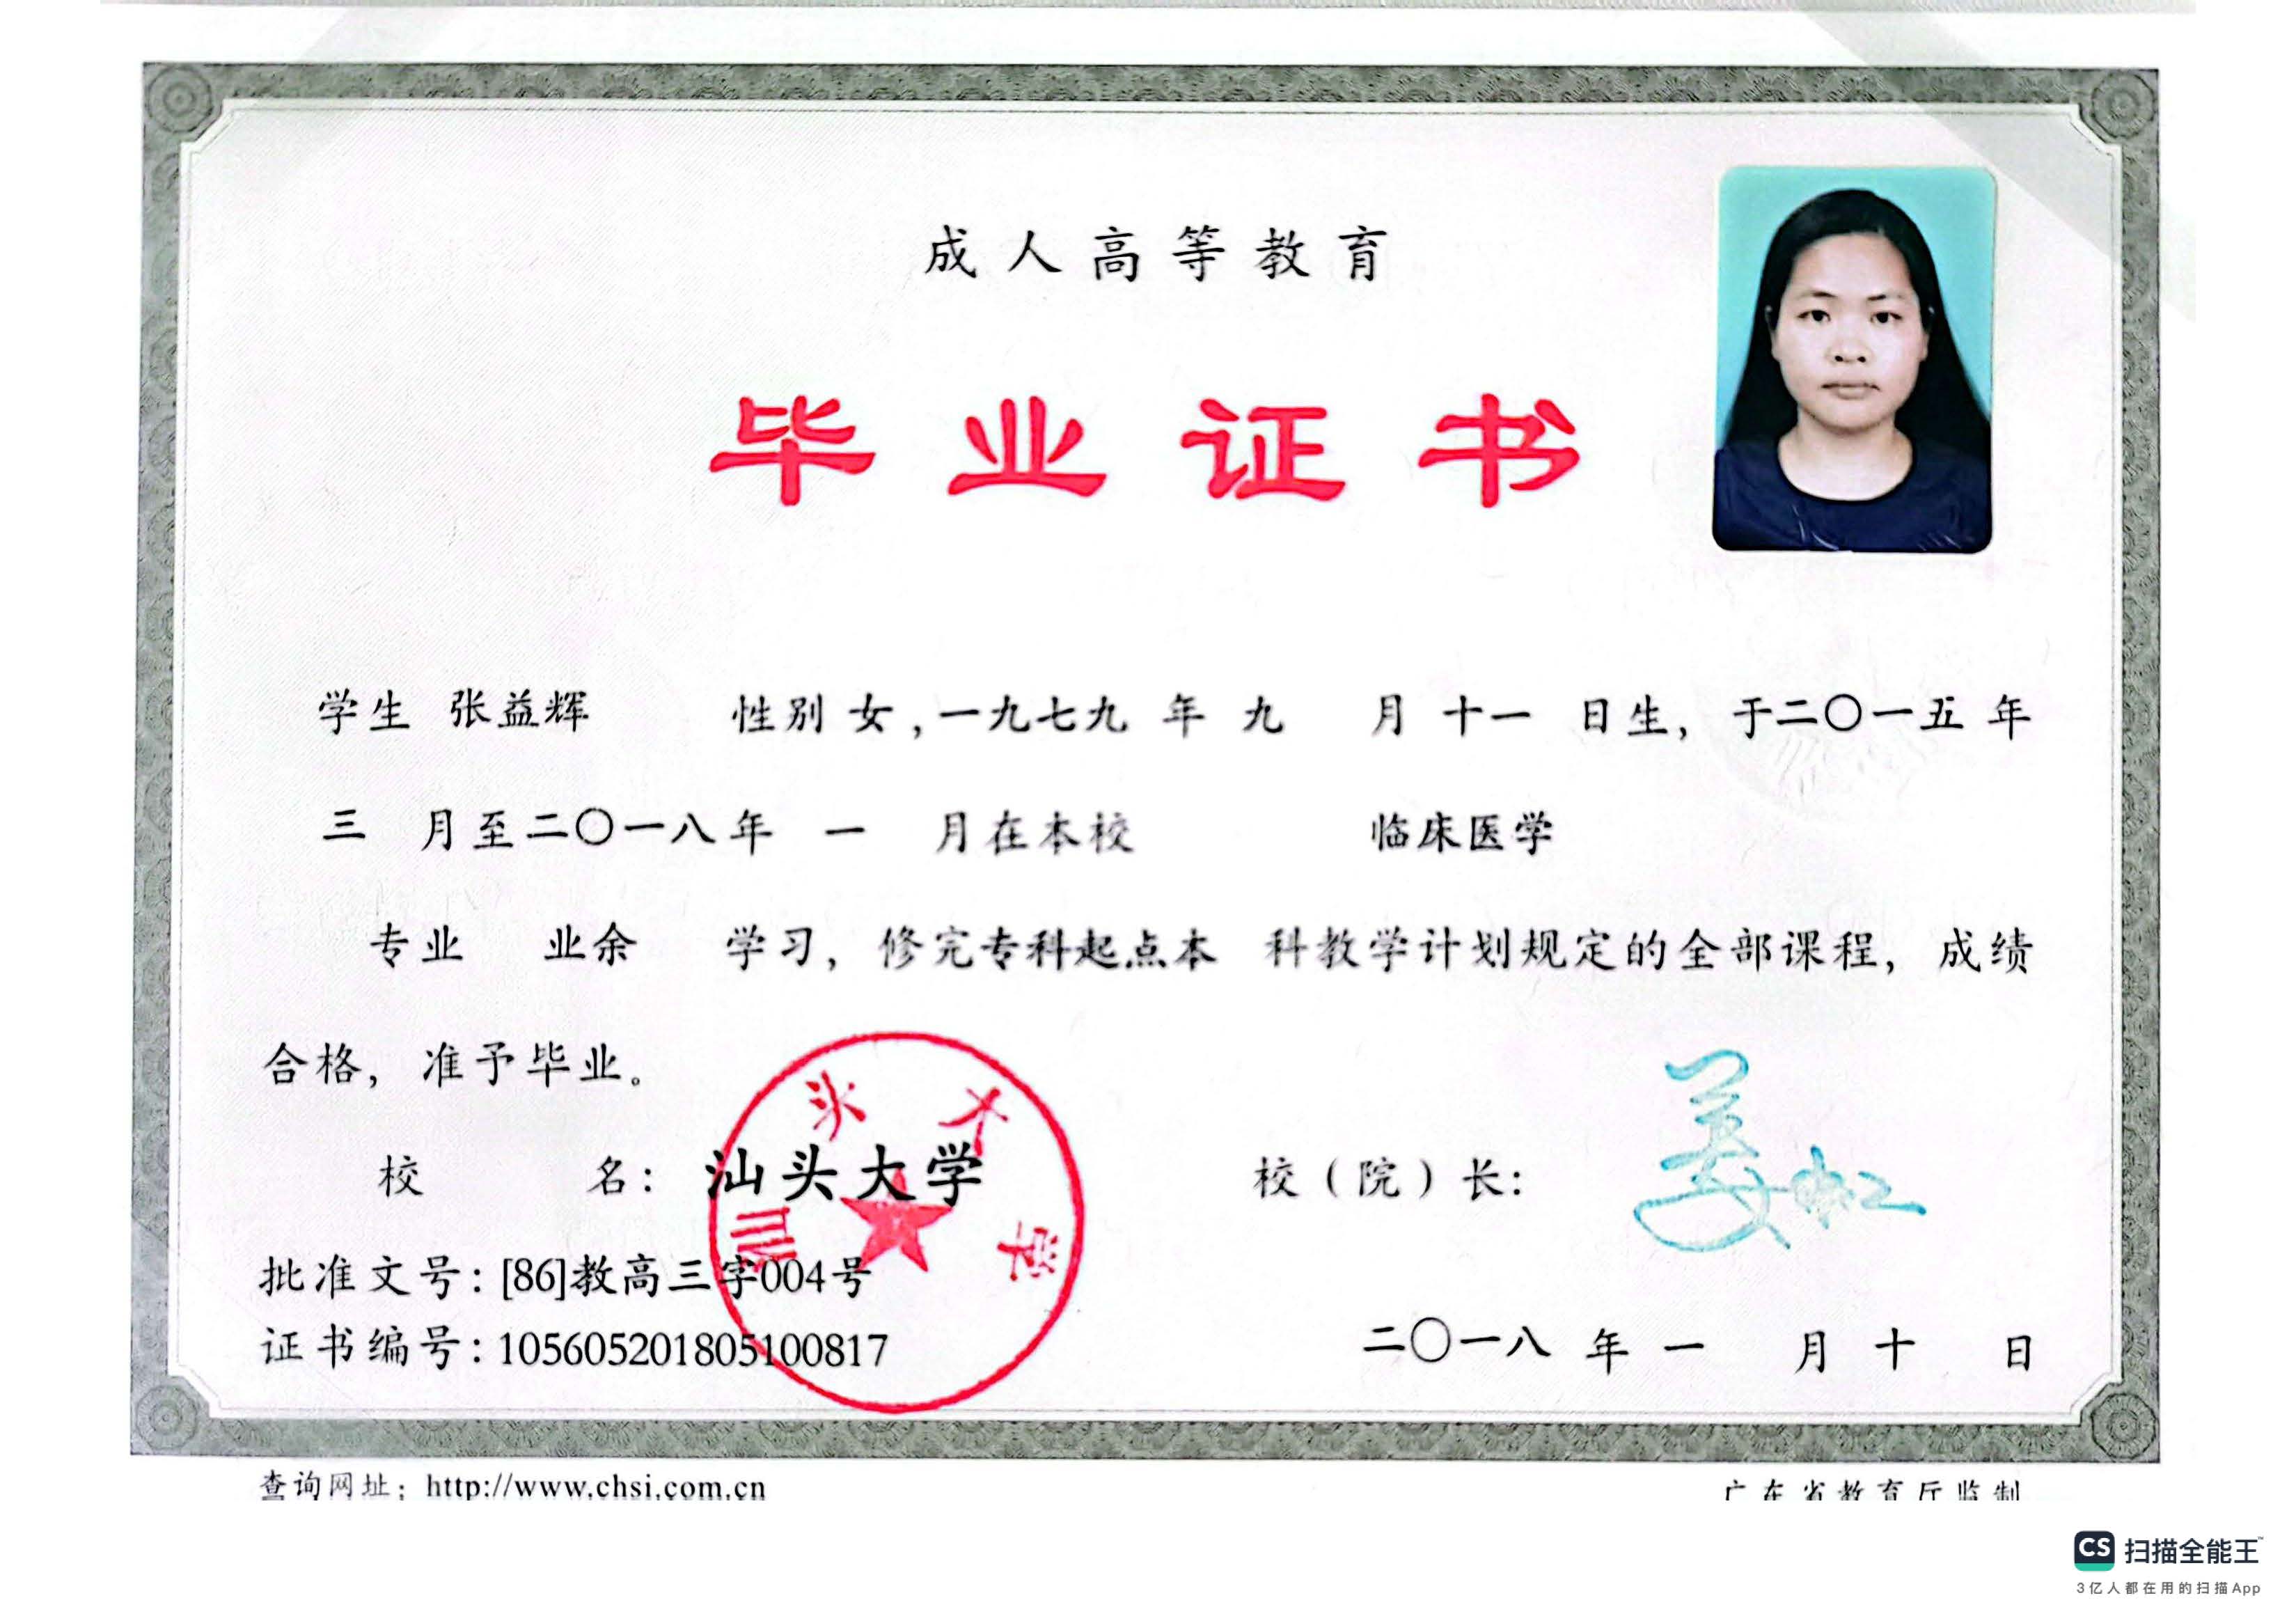 成人高等教育
毕业证书
学生 张益辉 性别 女，一九七九 年 九 月 十一 日生，于二〇一五 年
三 月至二〇一八年 一 月在本校 临床医学
专业 业余 学习，修完专科起点本 科教学计划规定的全部课程，成绩
合格，准予毕业。
校 名：汕头大学 校（院）长：
汕头大学
批准文号：[86]教高三字004号
证书编号：105605201805100817
二〇一八 年 一 月 十 日
查询网址：http://www.chsi.com.cn 广东省教育厅监制
CS 扫描全能王™
3亿人都在用的扫描App